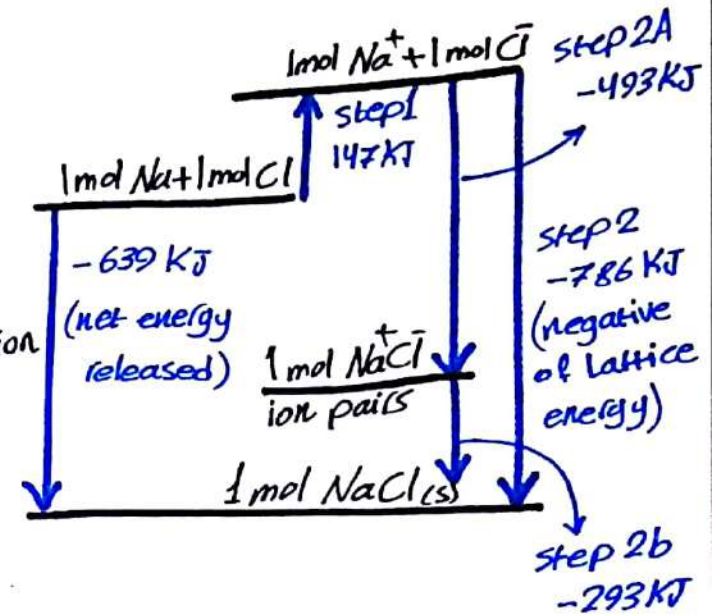 1mol Na⁺+1mol Cl⁻
step1
147KJ
step2A
-493KJ
1mol Na+1mol Cl
-639 KJ
(net energy
released)
ion
step2
-786 KJ
(negative
of Lattice
energy)
1mol Na⁺Cl⁻
ion pairs
1mol NaCl(s)
step 2b
-293KJ